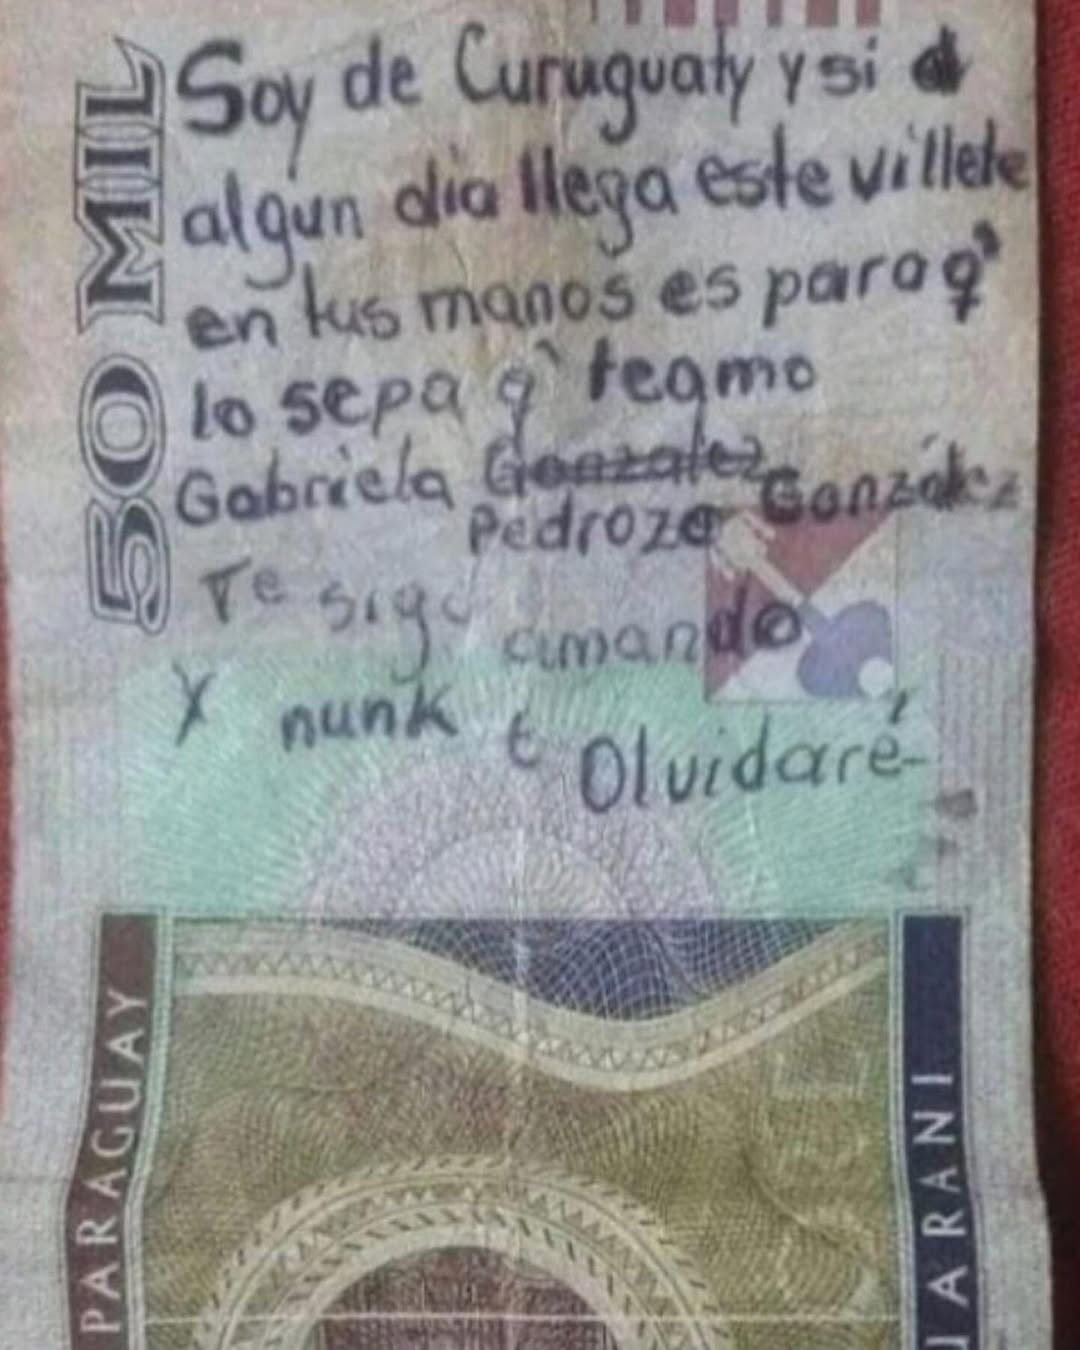 Soy de Curuguaty y si
algun día llega este villete
en tus manos es para q'
lo sepa q' teamo
Gabriela Gonzalez González
Pedrozo
Te sigo amando
Y nunk t Olvidaré-
50 MIL
PARAGUAY
UARANI